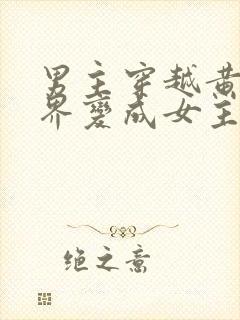 男主穿越黄
界变成女主
绝之意